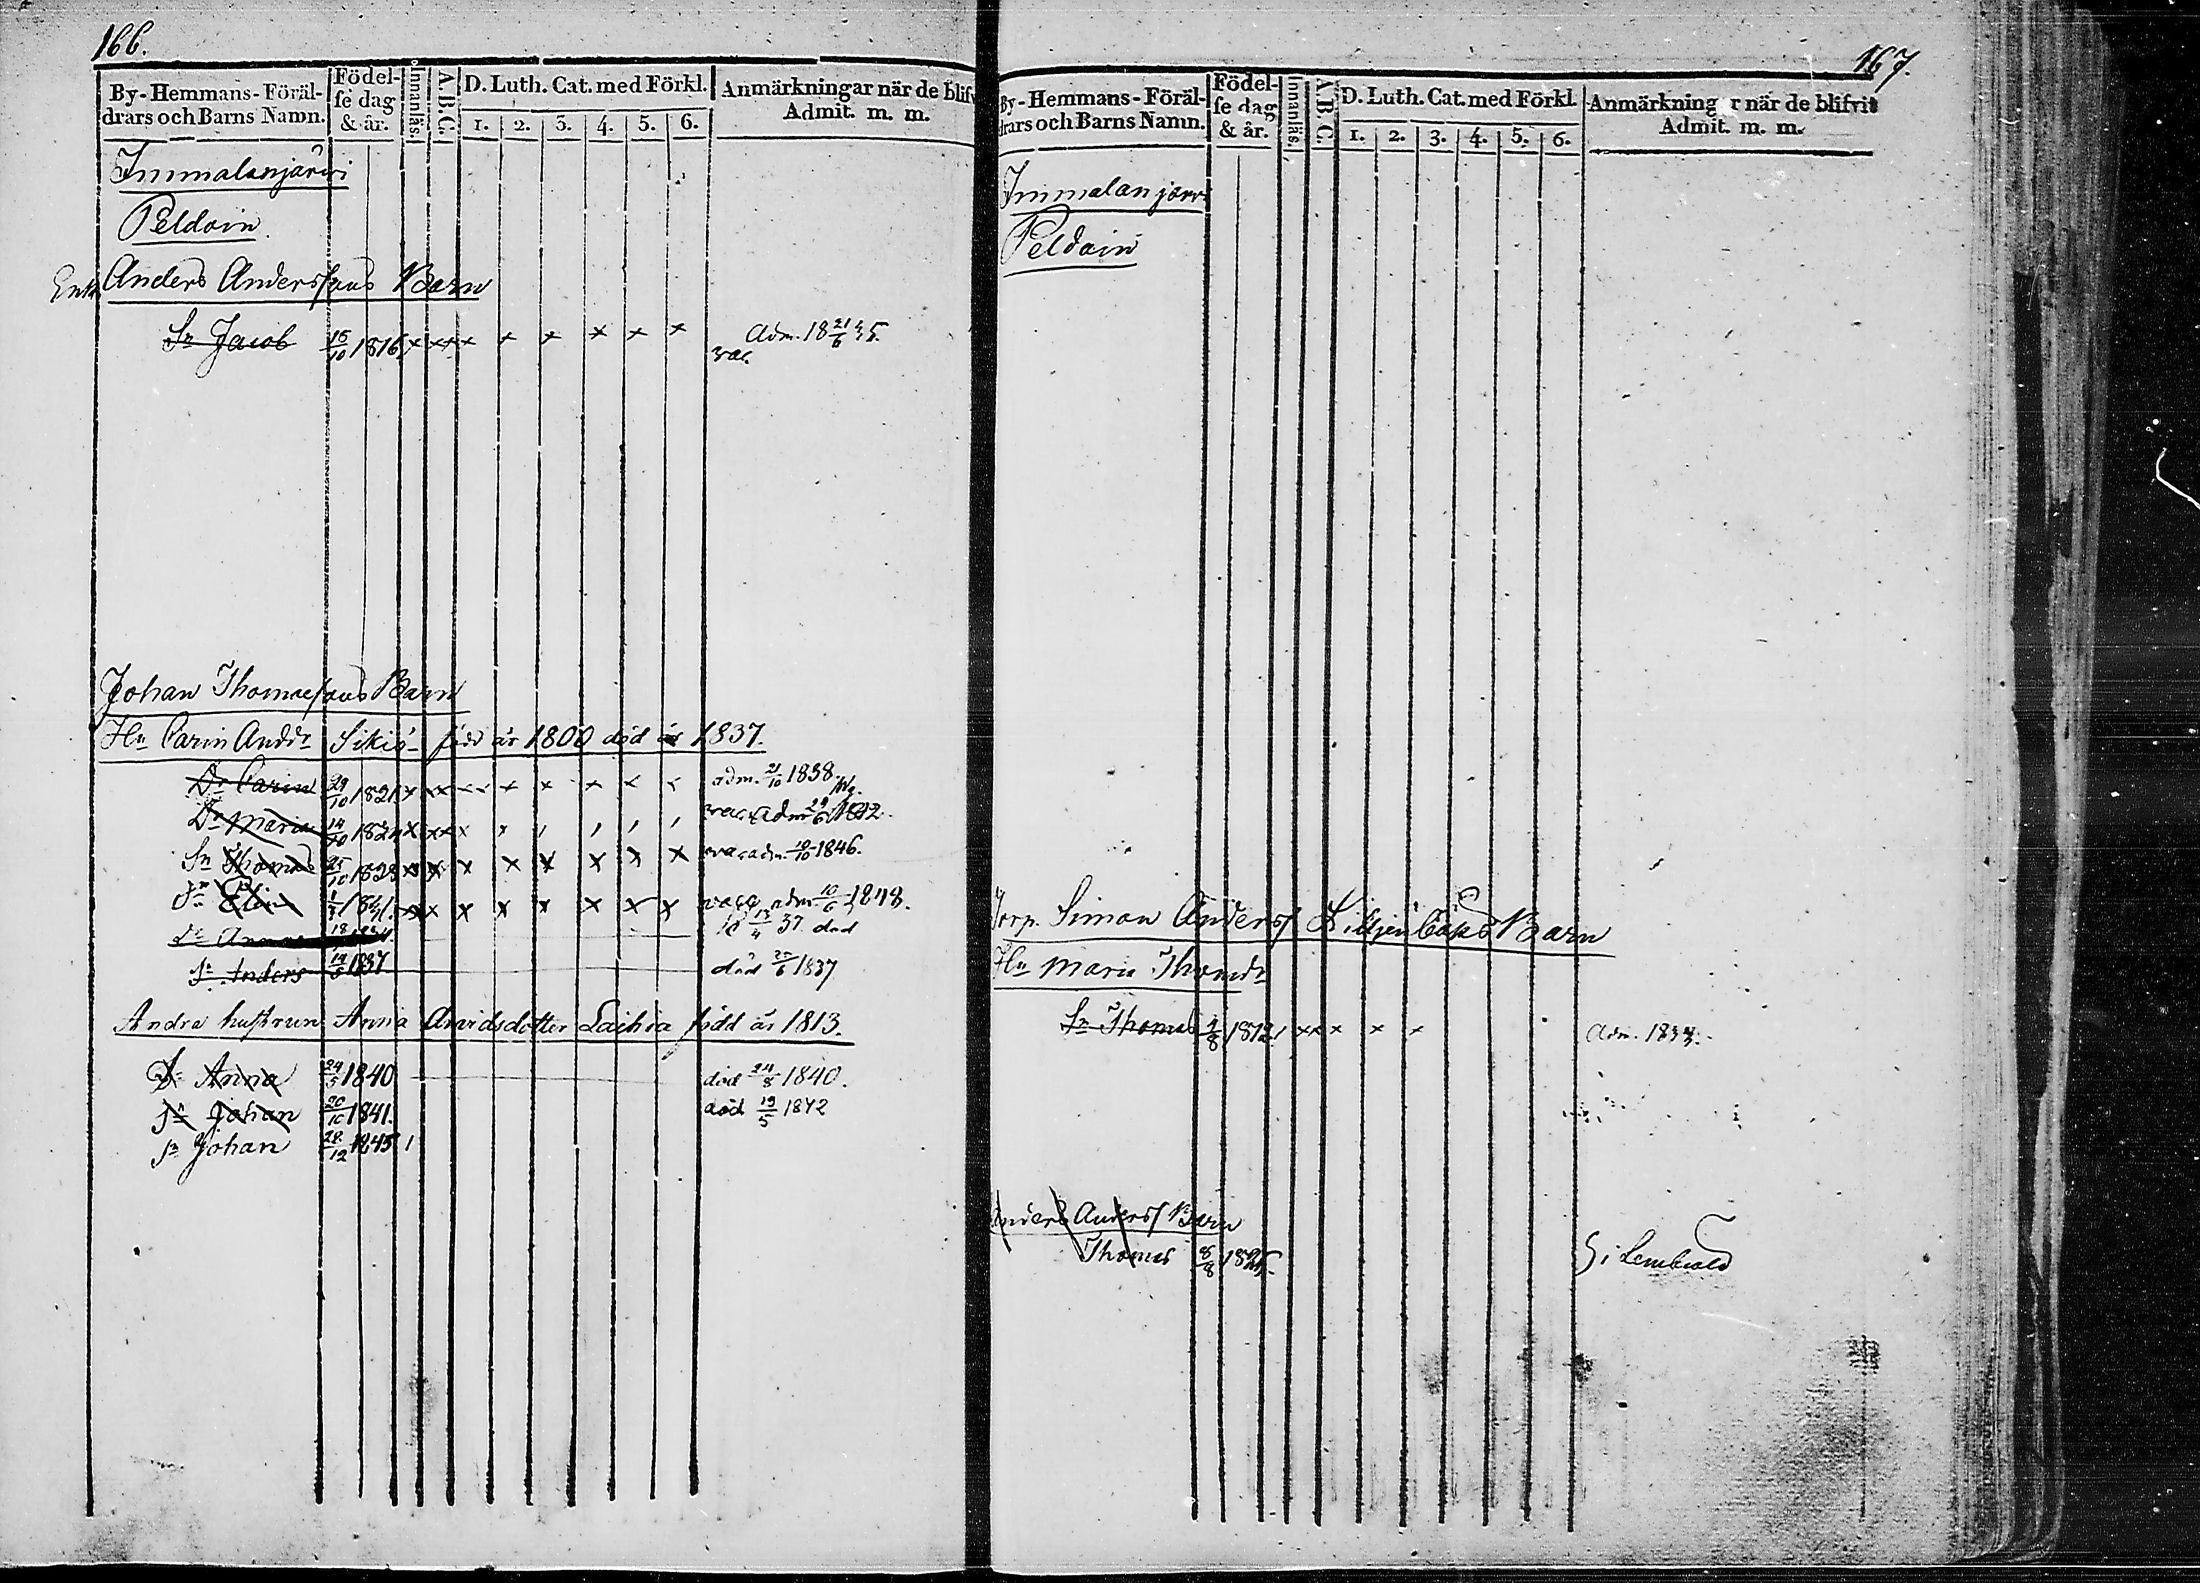 166.
By-Hemmans-Föräl-
drars och Barns Namn.
Födel-
se dag
& år.
Innanläs.
A.B.C.
D. Luth. Cat. med Förkl.
1. 2. 3. 4. 5. 6.
Anmärkningar när de blifv
Admit. m. m.
Immalanjärvi
Peldoin
Anders Anderssons Barn
Sn Jacob 16/10 1816 x x x x x x x x x Adm. 18 21/6 35.
vac.
Johan Thomassons Barn
Hu Carin Andr född år 1800 död år 1837.
Dr Carin 29/10 1821 adm. 21/10 1838
Dr Maria 14/10 1824 vac. adm 1842.
Sn Thomas 25/10 1828 x x x x x x vac. adm. 1846.
Elin 1831. x x x x x x x adm. 10/6 1848.
Dr Anna 13/4 37. död
Sn Anders 1837 död 1837
Andra hustrun Anna Arvidsdotter Laihia född år 1813.
Dr Anna 24/5 1840 död 24/8 1840.
Sn Johan 20/10 1841. död 19/5 1842
Sn Johan 28/12 1845
167.
By-Hemmans-Föräl-
drars och Barns Namn.
Födel-
se dag
& år.
Innanläs.
A.B.C.
D. Luth. Cat. med Förkl.
1. 2. 3. 4. 5. 6.
Anmärkning r när de blifvit
Admit. m. m.
Immalanjärvi
Peldoin
Torp. Simon Anderss Barn
Hu Maria Thomdr
Sn Thomas 1812 x x x x x Adm. 1833.
Anders Anderss Barn
Thomas 8/8 1825.